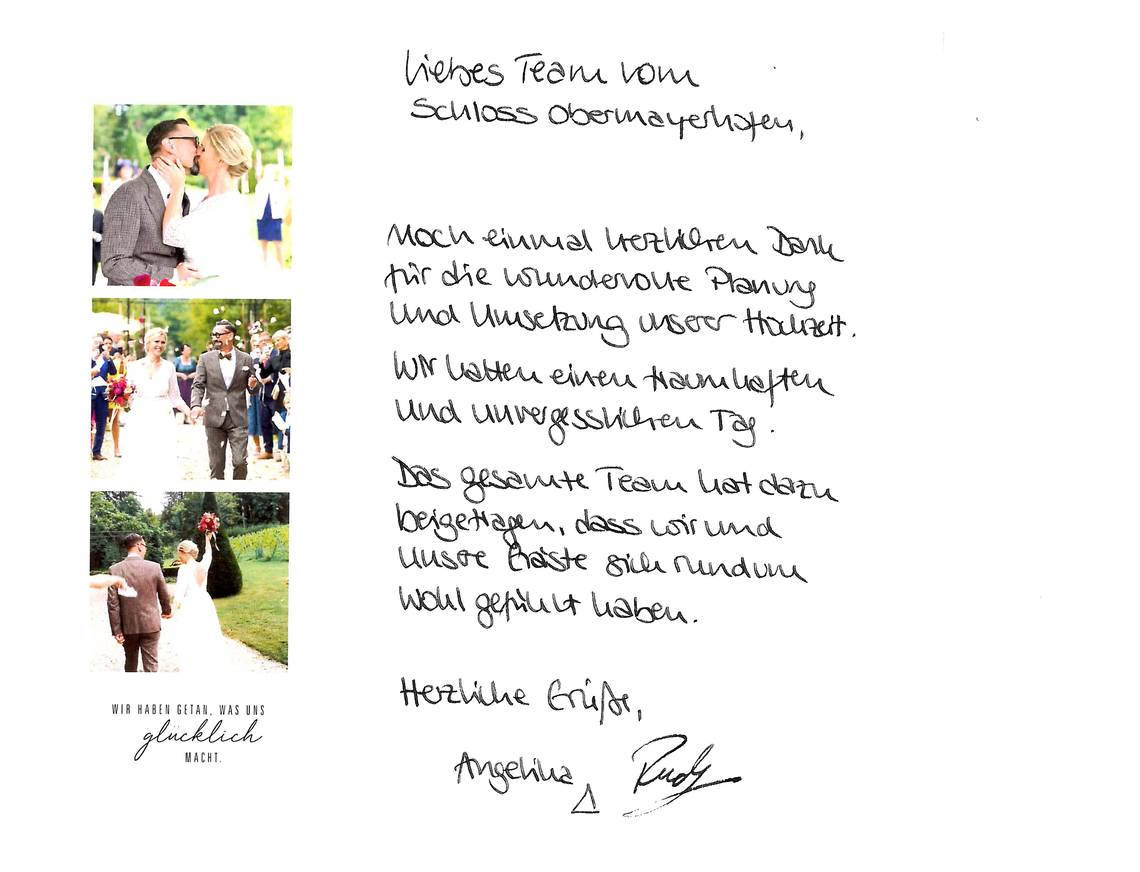 Liebes Team vom
Schloss Obermayerhofen,
Noch einmal herzlichen Dank
für die wundervolle Planung
und Umsetzung unserer Hochzeit.
Wir hatten einen traumhaften
und unvergesslichen Tag.
Das gesamte Team hat dazu
beigetragen, dass wir und
unsere Gäste sich rundum
wohl gefühlt haben.
Herzliche Grüße,
Angelika Rudy
WIR HABEN GETAN, WAS UNS
glücklich
MACHT.